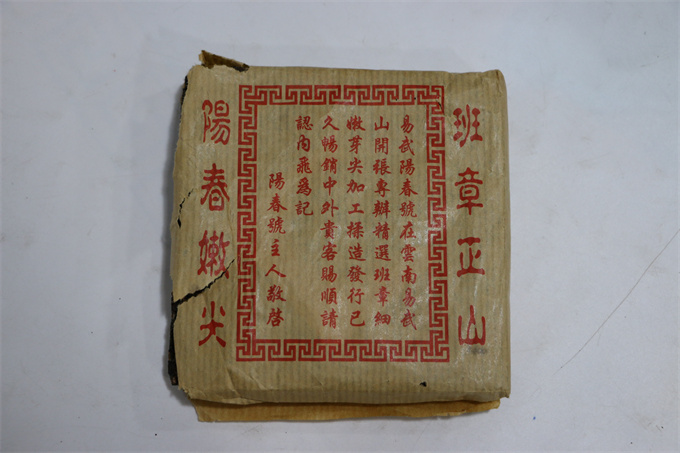 班章正山
易武陽春號在雲南易武
山開張專辦精選班章細
嫩芽尖加工揉造發行已
久暢銷中外貴客賜順請
認內飛爲記
陽春號主人敬啓
陽春嫩尖